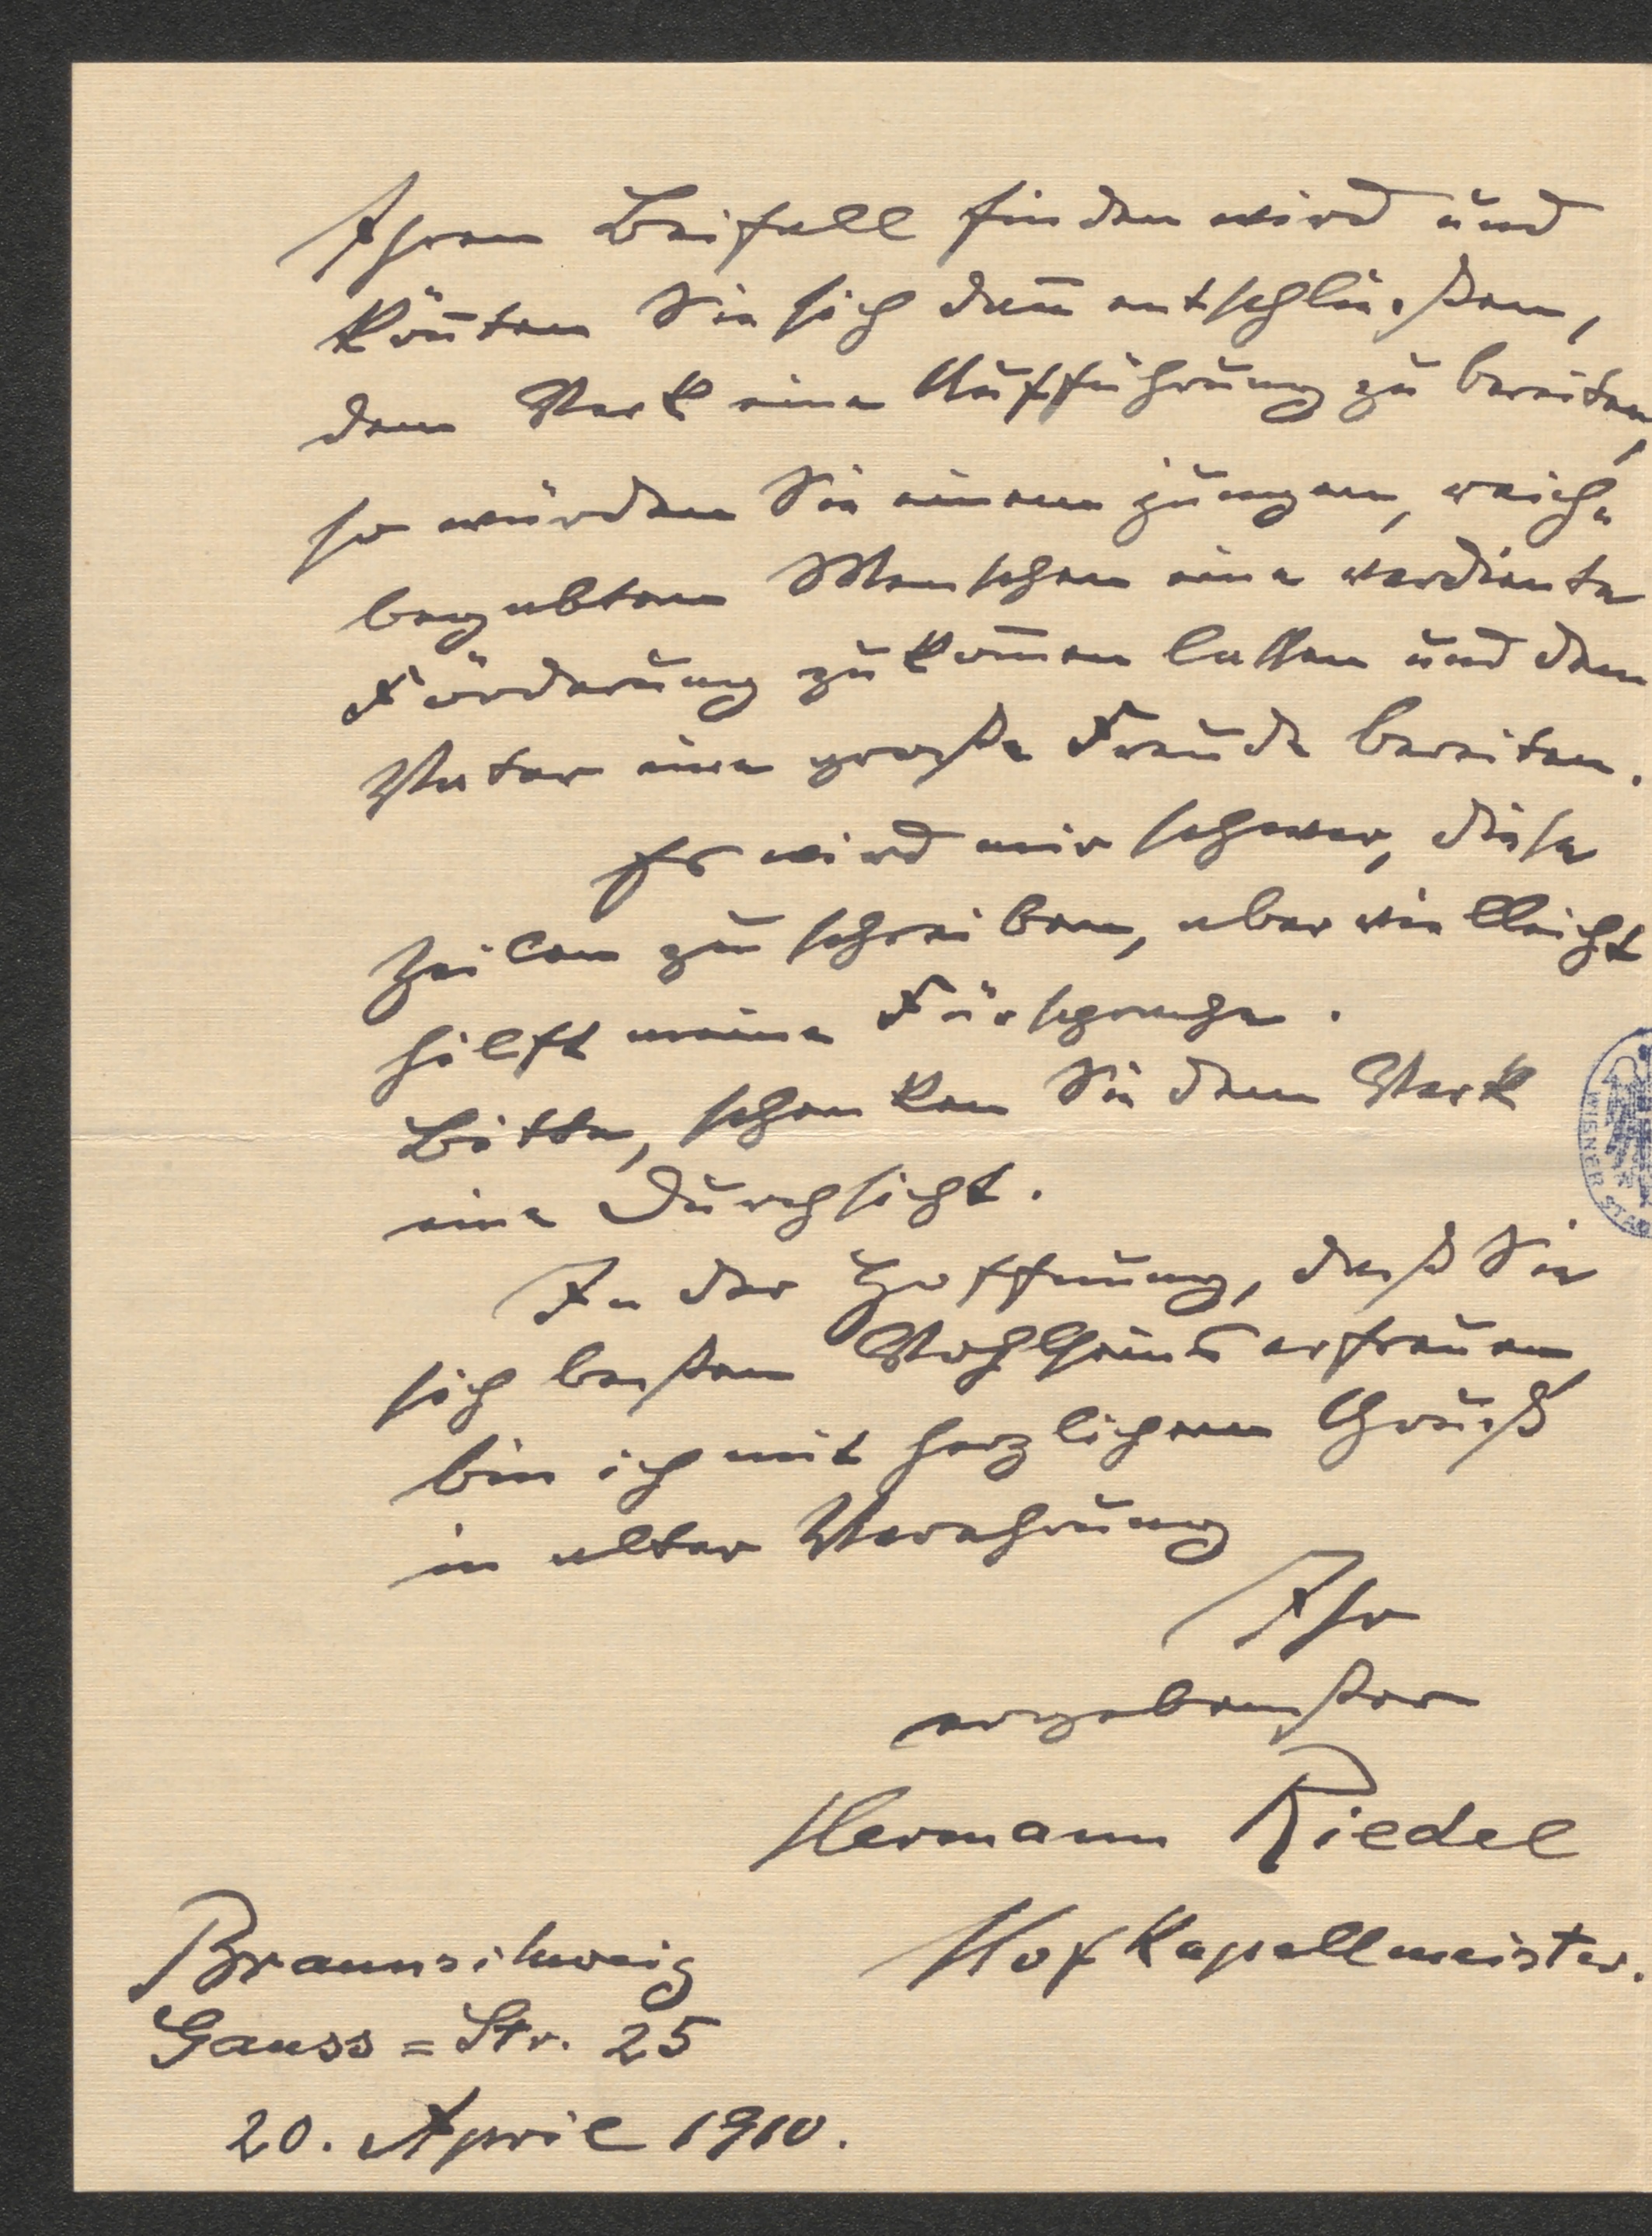 Ihren Beifall finden wird und
kön̅ten Sie sich dan̅ entschließen,
dem Werk eine Aufführung zu bereiten,
so würden Sie einem jungen, reich-
begabten Menschen eine verdiente
Förderung zukom̅en lassen und dem
Vater eine große Freude bereiten.
Es wird mir schwer, diese
Zeilen zu schreiben, aber vielleicht
hilft meine Fürsprache.
Bitte, schenken Sie dem Werk
eine Durchsicht.
In der Hoffnung, daß Sie
sich besten Wohlseins erfreuen,
bin ich mit herzlichem Gruß
in alter Verehrung
Ihr
ergebenster
Hermann Riedel
Hofkapellmeister.
Braunschweig
Gauss=Str. 25
20. April 1910.